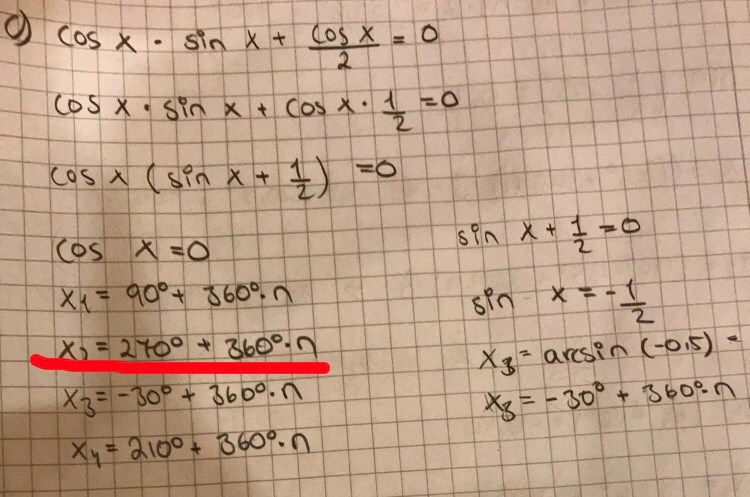 c) cos x · sin x + cos x / 2 = 0
cos x · sin x + cos x · 1/2 = 0
cos x (sin x + 1/2) = 0
cos x = 0
x₁ = 90° + 360°·n
x₂ = 270° + 360°·n
x₃ = -30° + 360°·n
x₄ = 210° + 360°·n
sin x + 1/2 = 0
sin x = - 1/2
x₃ = arcsin (-0,5) =
x₃ = -30° + 360°·n